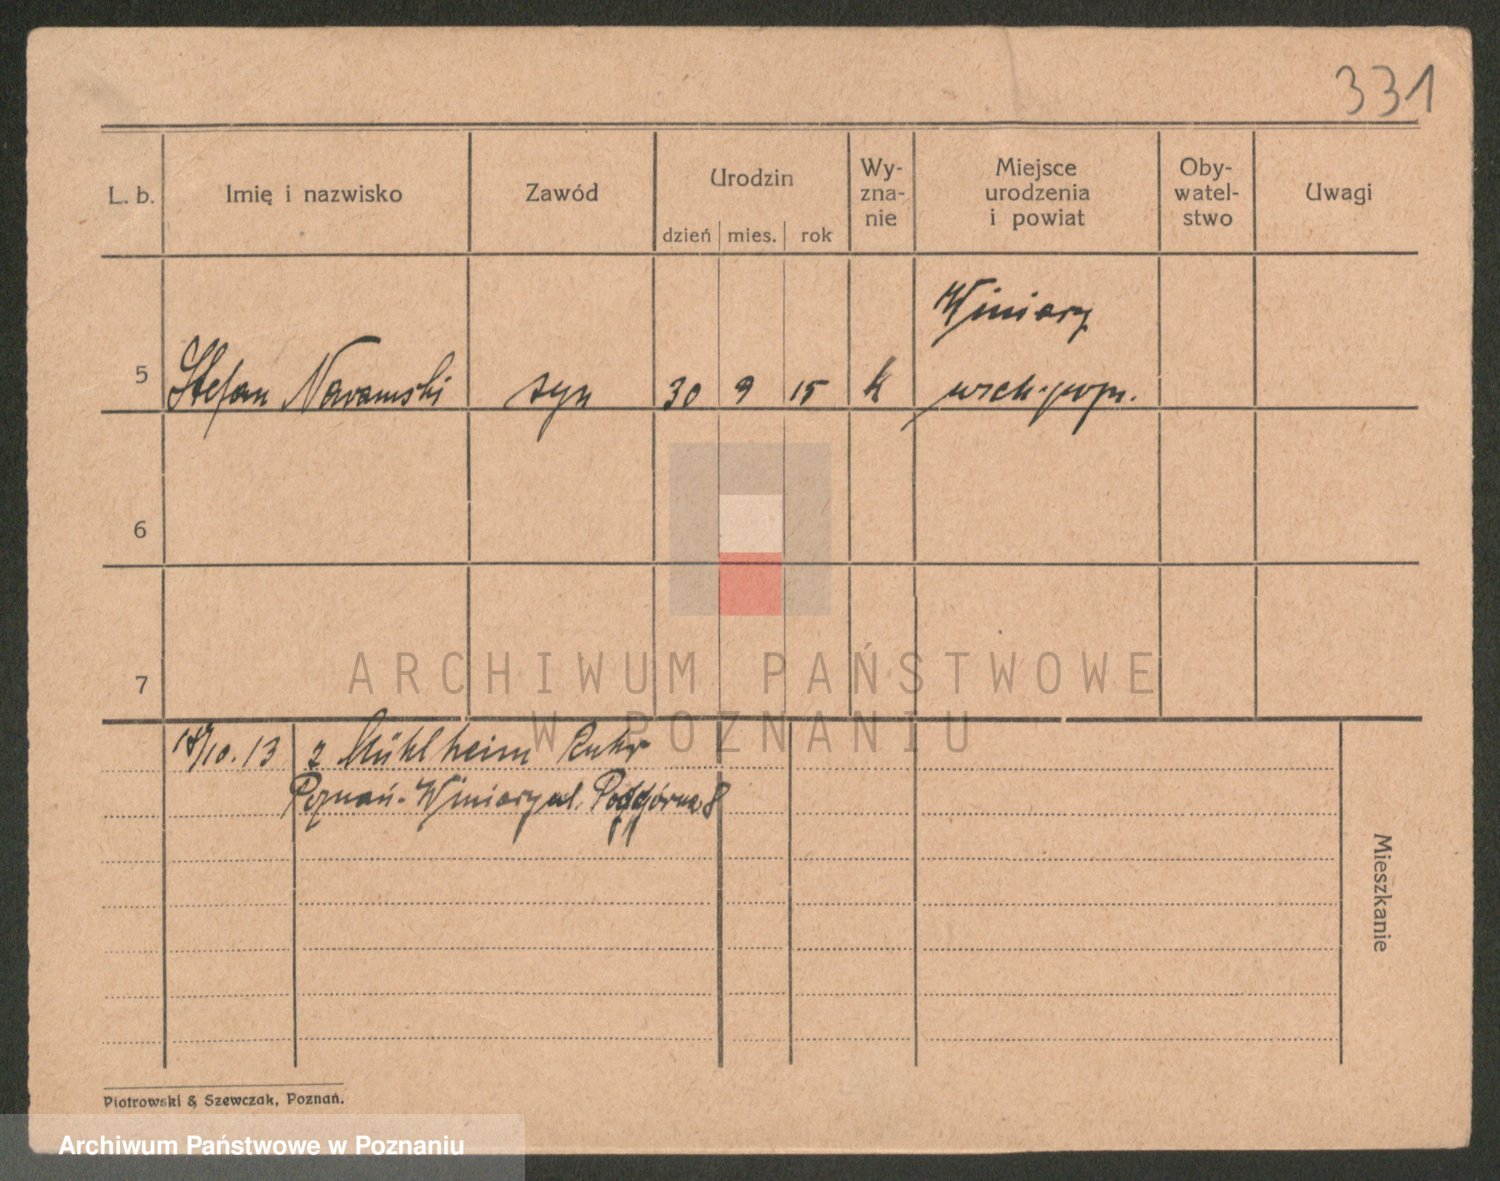 331
L. b. Imię i nazwisko Zawód Urodzin Wy-zna-nie Miejsce urodzenia i powiat Oby-watel-stwo Uwagi
dzień mies. rok
Winiary
5 Stefan syn 30 9 15 k
6
7
ARCHIWUM PAŃSTWOWE
W POZNANIU
/10.13 z Mühlheim Ruhr
Poznań-Winiary ul. Podgórna 8
Mieszkanie
Piotrowski & Szewczak, Poznań.
Archiwum Państwowe w Poznaniu